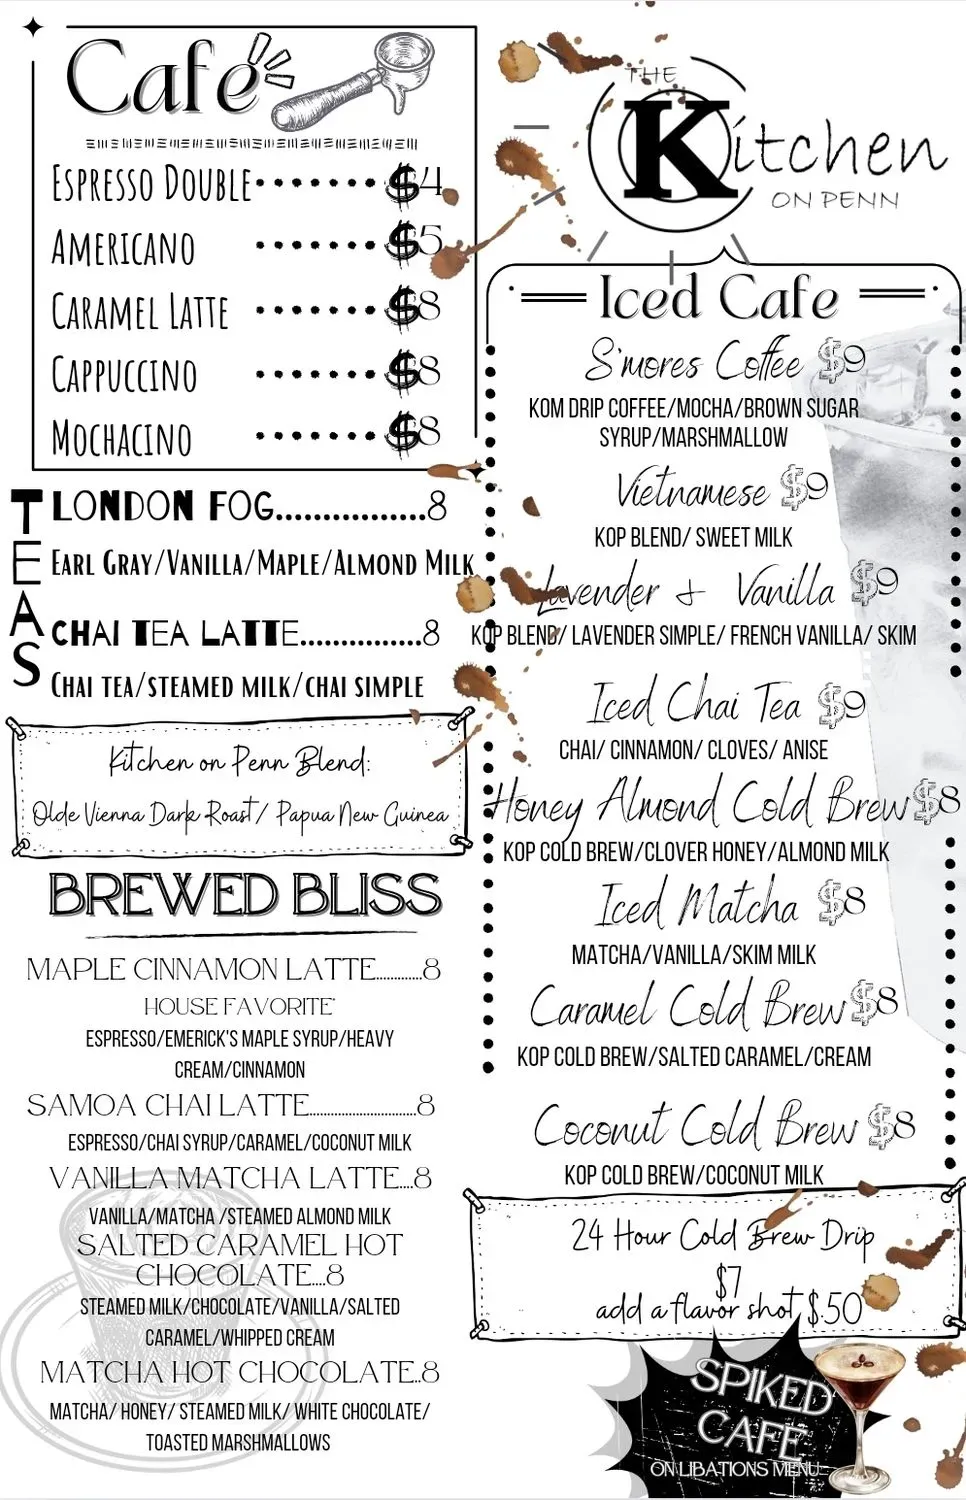 Cafe
ESPRESSO DOUBLE.......$4
AMERICANO.......$5
CARAMEL LATTE.......$8
CAPPUCCINO.......$8
MOCHACINO.......$8
TEAS
LONDON FOG................8
EARL GRAY/VANILLA/MAPLE/ALMOND MILK
CHAI TEA LATTE.............8
CHAI TEA/STEAMED MILK/CHAI SIMPLE
Kitchen on Penn Blend:
Olde Vienna Dark Roast/ Papua New Guinea
BREWED BLISS
MAPLE CINNAMON LATTE............8
HOUSE FAVORITE*
ESPRESSO/EMERICK'S MAPLE SYRUP/HEAVY
CREAM/CINNAMON
SAMOA CHAI LATTE............................8
ESPRESSO/CHAI SYRUP/CARAMEL/COCONUT MILK
VANILLA MATCHA LATTE....8
VANILLA/MATCHA /STEAMED ALMOND MILK
SALTED CARAMEL HOT
CHOCOLATE....8
STEAMED MILK/CHOCOLATE/VANILLA/SALTED
CARAMEL/WHIPPED CREAM
MATCHA HOT CHOCOLATE..8
MATCHA/ HONEY/ STEAMED MILK/ WHITE CHOCOLATE/
TOASTED MARSHMALLOWS
THE
Kitchen
ON PENN
Iced Cafe
S'mores Coffee $9
KOM DRIP COFFEE/MOCHA/BROWN SUGAR
SYRUP/MARSHMALLOW
Vietnamese $9
KOP BLEND/ SWEET MILK
Lavender & Vanilla $9
KOP BLEND/ LAVENDER SIMPLE/ FRENCH VANILLA/ SKIM
Iced Chai Tea $9
CHAI/ CINNAMON/ CLOVES/ ANISE
Honey Almond Cold Brew $8
KOP COLD BREW/CLOVER HONEY/ALMOND MILK
Iced Matcha $8
MATCHA/VANILLA/SKIM MILK
Caramel Cold Brew $8
KOP COLD BREW/SALTED CARAMEL/CREAM
Coconut Cold Brew $8
KOP COLD BREW/COCONUT MILK
24 Hour Cold Brew Drip
$7
add a flavor shot $.50
SPIKED
CAFE
ON LIBATIONS MENU